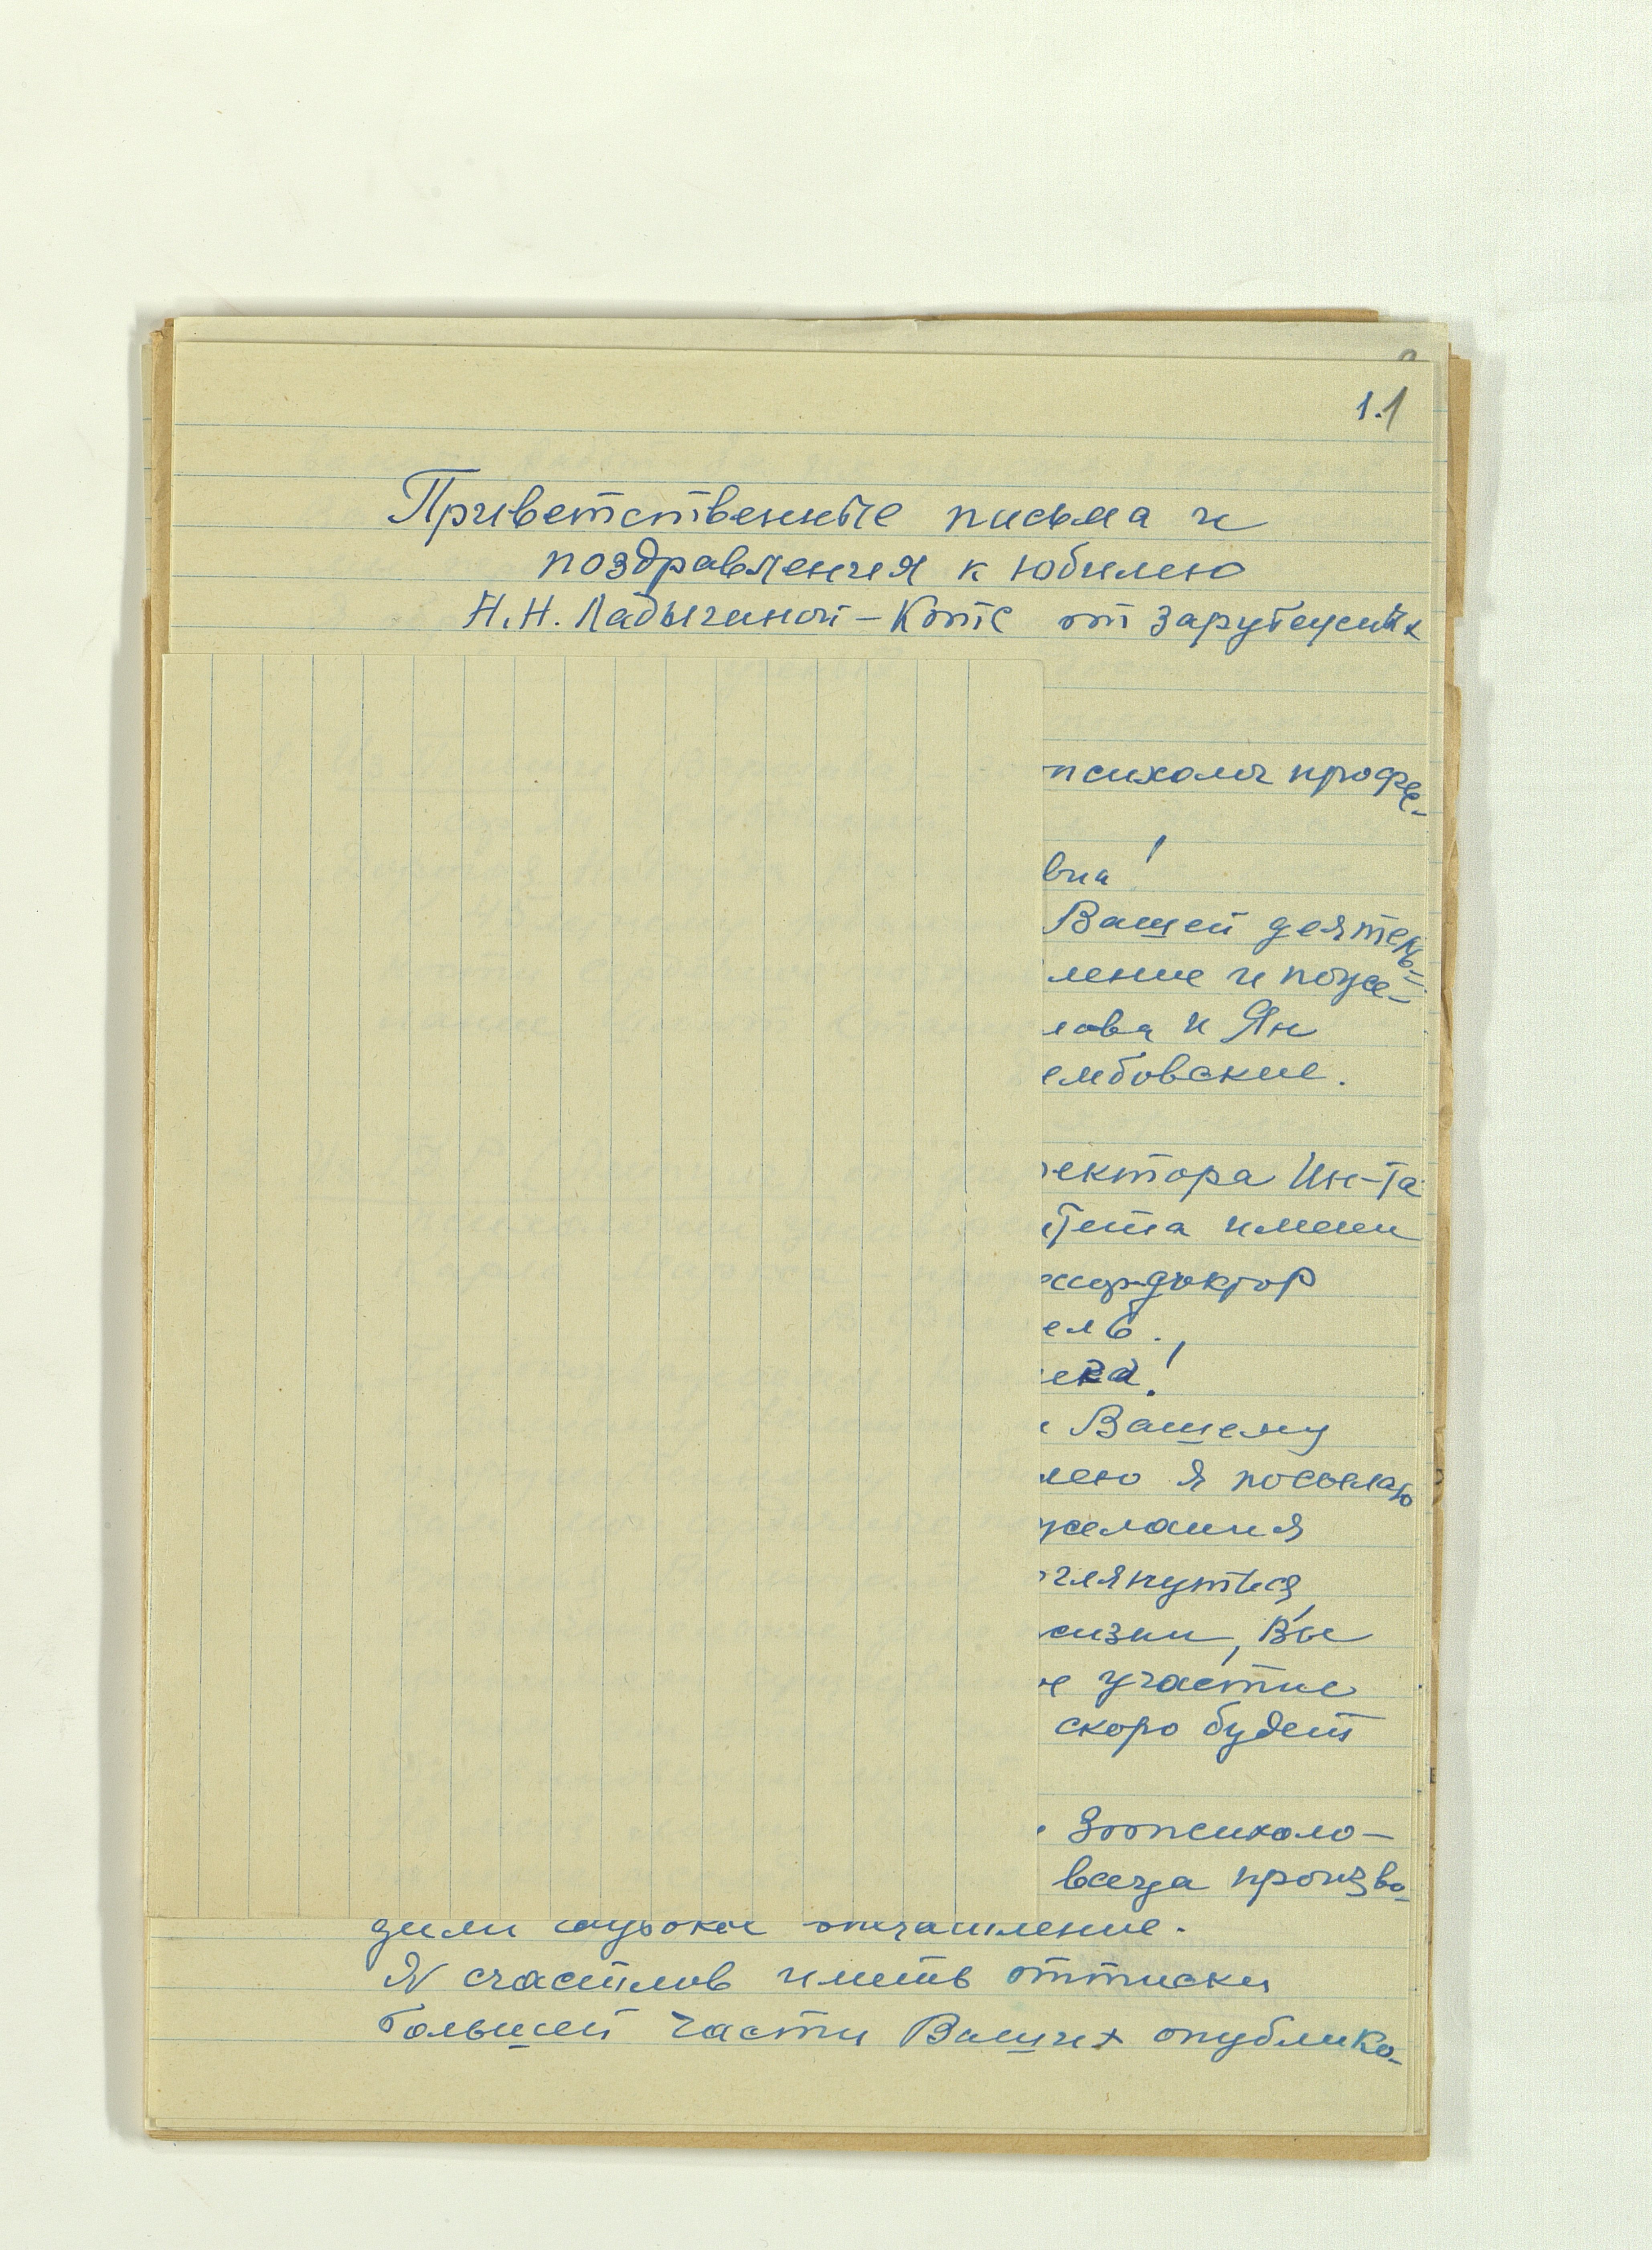 1.1
Приветственные письма и
поздравления к юбилею
Н.Н. Ладыгиной-Котс от зарубежных
психолог профес-
вна!
Вашей деятель-
ление и поже-
лова и Ян
ембовские.
ектора Ин-та
тета имени
доктор
ель.,
ека!
Вашему
лею я посылаю
желания
глянуться
жизни, Вы
е участие
скоро будет
Зоопсихоло-
всегда произво-
дили глубокое впечатление.
Я счастлив иметь оттиски
большей части Ваших опублико-